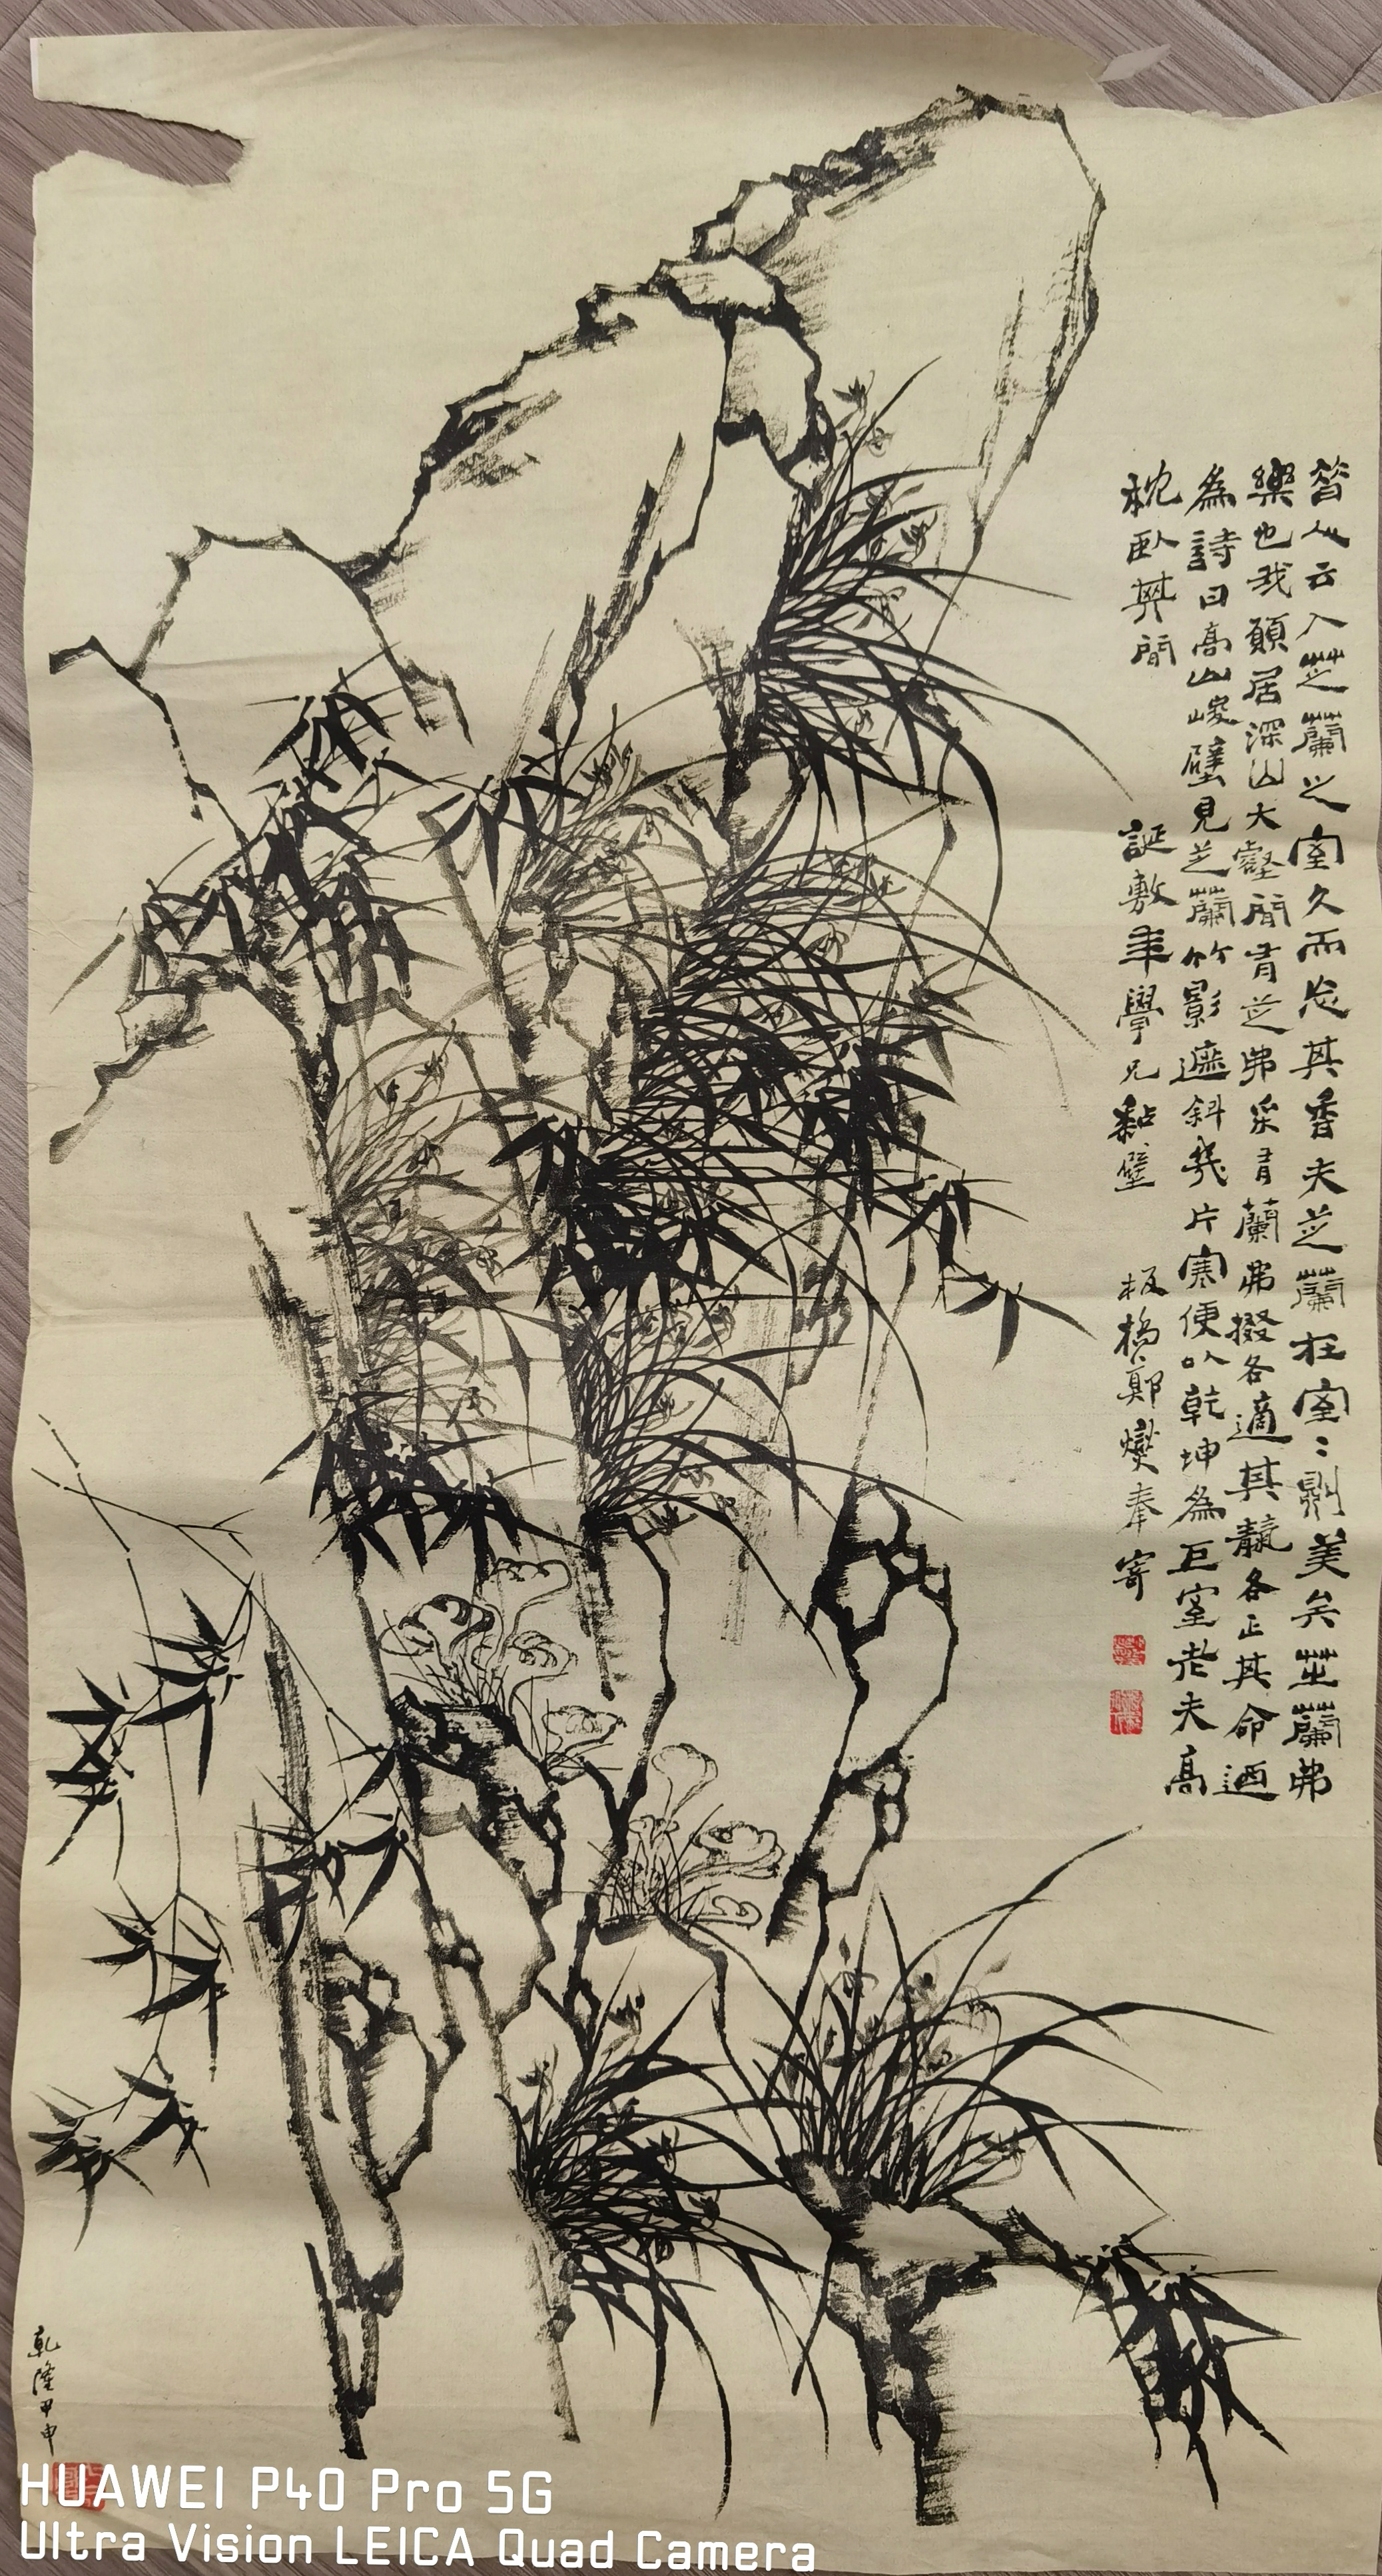 昔人云入芝蘭之室久而忘其香夫芝蘭在室〻則美矣芝蘭弗
樂也我願居深山大壑間有芝弗采有蘭弗掇各適其靝各正其命迺
為詩曰高山峻壁見芝蘭竹影遮斜幾片寒便以乾坤為巨室老夫高
枕臥其間 誕敷年學兄黏壁 板橋鄭燮奉寄
乾隆甲申
HUAWEI P40 Pro 5G
Ultra Vision LEICA Quad Camera